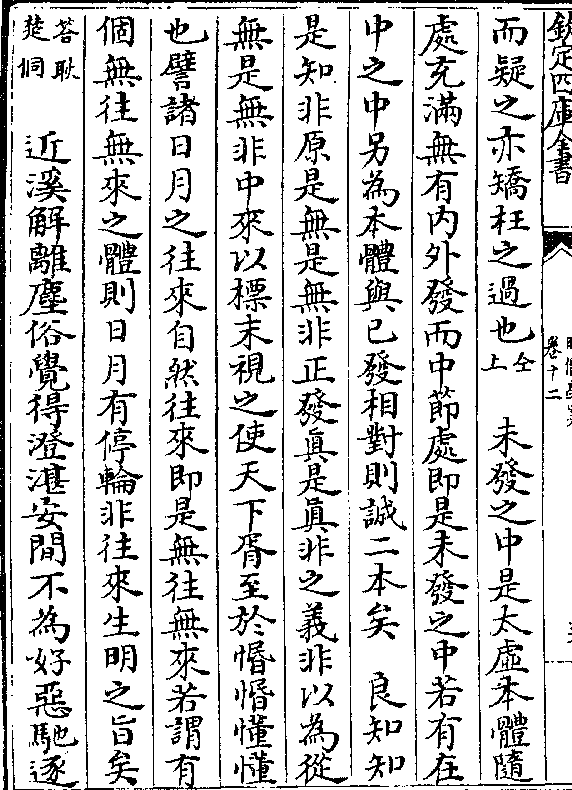 欽定四庫全書
卷十二
而疑之亦矯枉之過也仝上　未發之中是太虛本體隨
處充滿無有内外發而中節處即是未發之中若有在
中之中另為本體與已發相對則誠二本矣　良知知
是知非原是無是無非正發真是真非之義非以為從
無是無非中來以標末視之使天下胥至於惛惛懂懂
也譬諸日月之往來自然往來即是無往無來若謂有
個無往無來之體則日月有停輪非往來生明之旨矣
答耿楚侗　近溪解離塵俗覺得澄湛安閒不為好惡馳逐